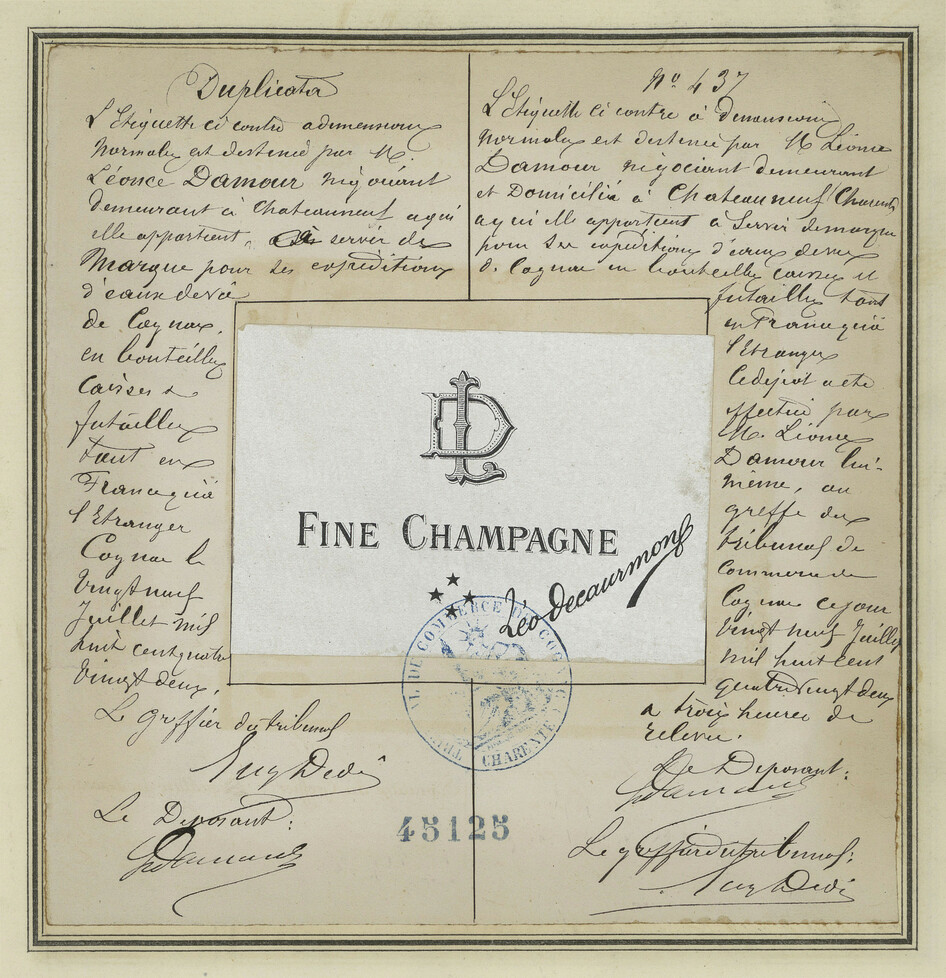 Duplicata
L'Etiquette ci contre a dimensions
Normales est destinée par M.
Léonce Damour négociant
demeurant à Chateauneuf a qui
elle appartient, à servir de
Marque pour ses expéditions
d'eaux de vie
de Cognac,
en bouteilles
Caisses &
futailles
tant en
France qu'à
l'Etranger
Cognac le
Vingt neuf
Juillet mil
huit cent quatre
Vingt deux,
Le Greffier du tribunal
Le Deposant:
No. 437
L'Etiquette ci contre à dimensions
Normales est destinée par M Léonce
Damour négociant demeurant
et Domicilié à Chateauneuf (Charente)
a qui elle appartient à Servir de marque
pour ses expéditions d'eaux de vie
de Cognac en bouteilles caisses et
futailles tant
en France qu'à
l'Etranger
Le dépôt a été
effectué par
M. Léonce
Damour lui-
même, au
greffe du
tribunal de
Commerce de
Cognac ce jour
Vingt neuf Juillet
mil huit cent
quatre vingt deux
a trois heures de
relevée.
Le Deposant:
Le greffier du tribunal:
DL
FINE CHAMPAGNE
Léo decaurmont
TRIBUNAL DE COMMERCE DE COGNAC
CHARENTE
45125